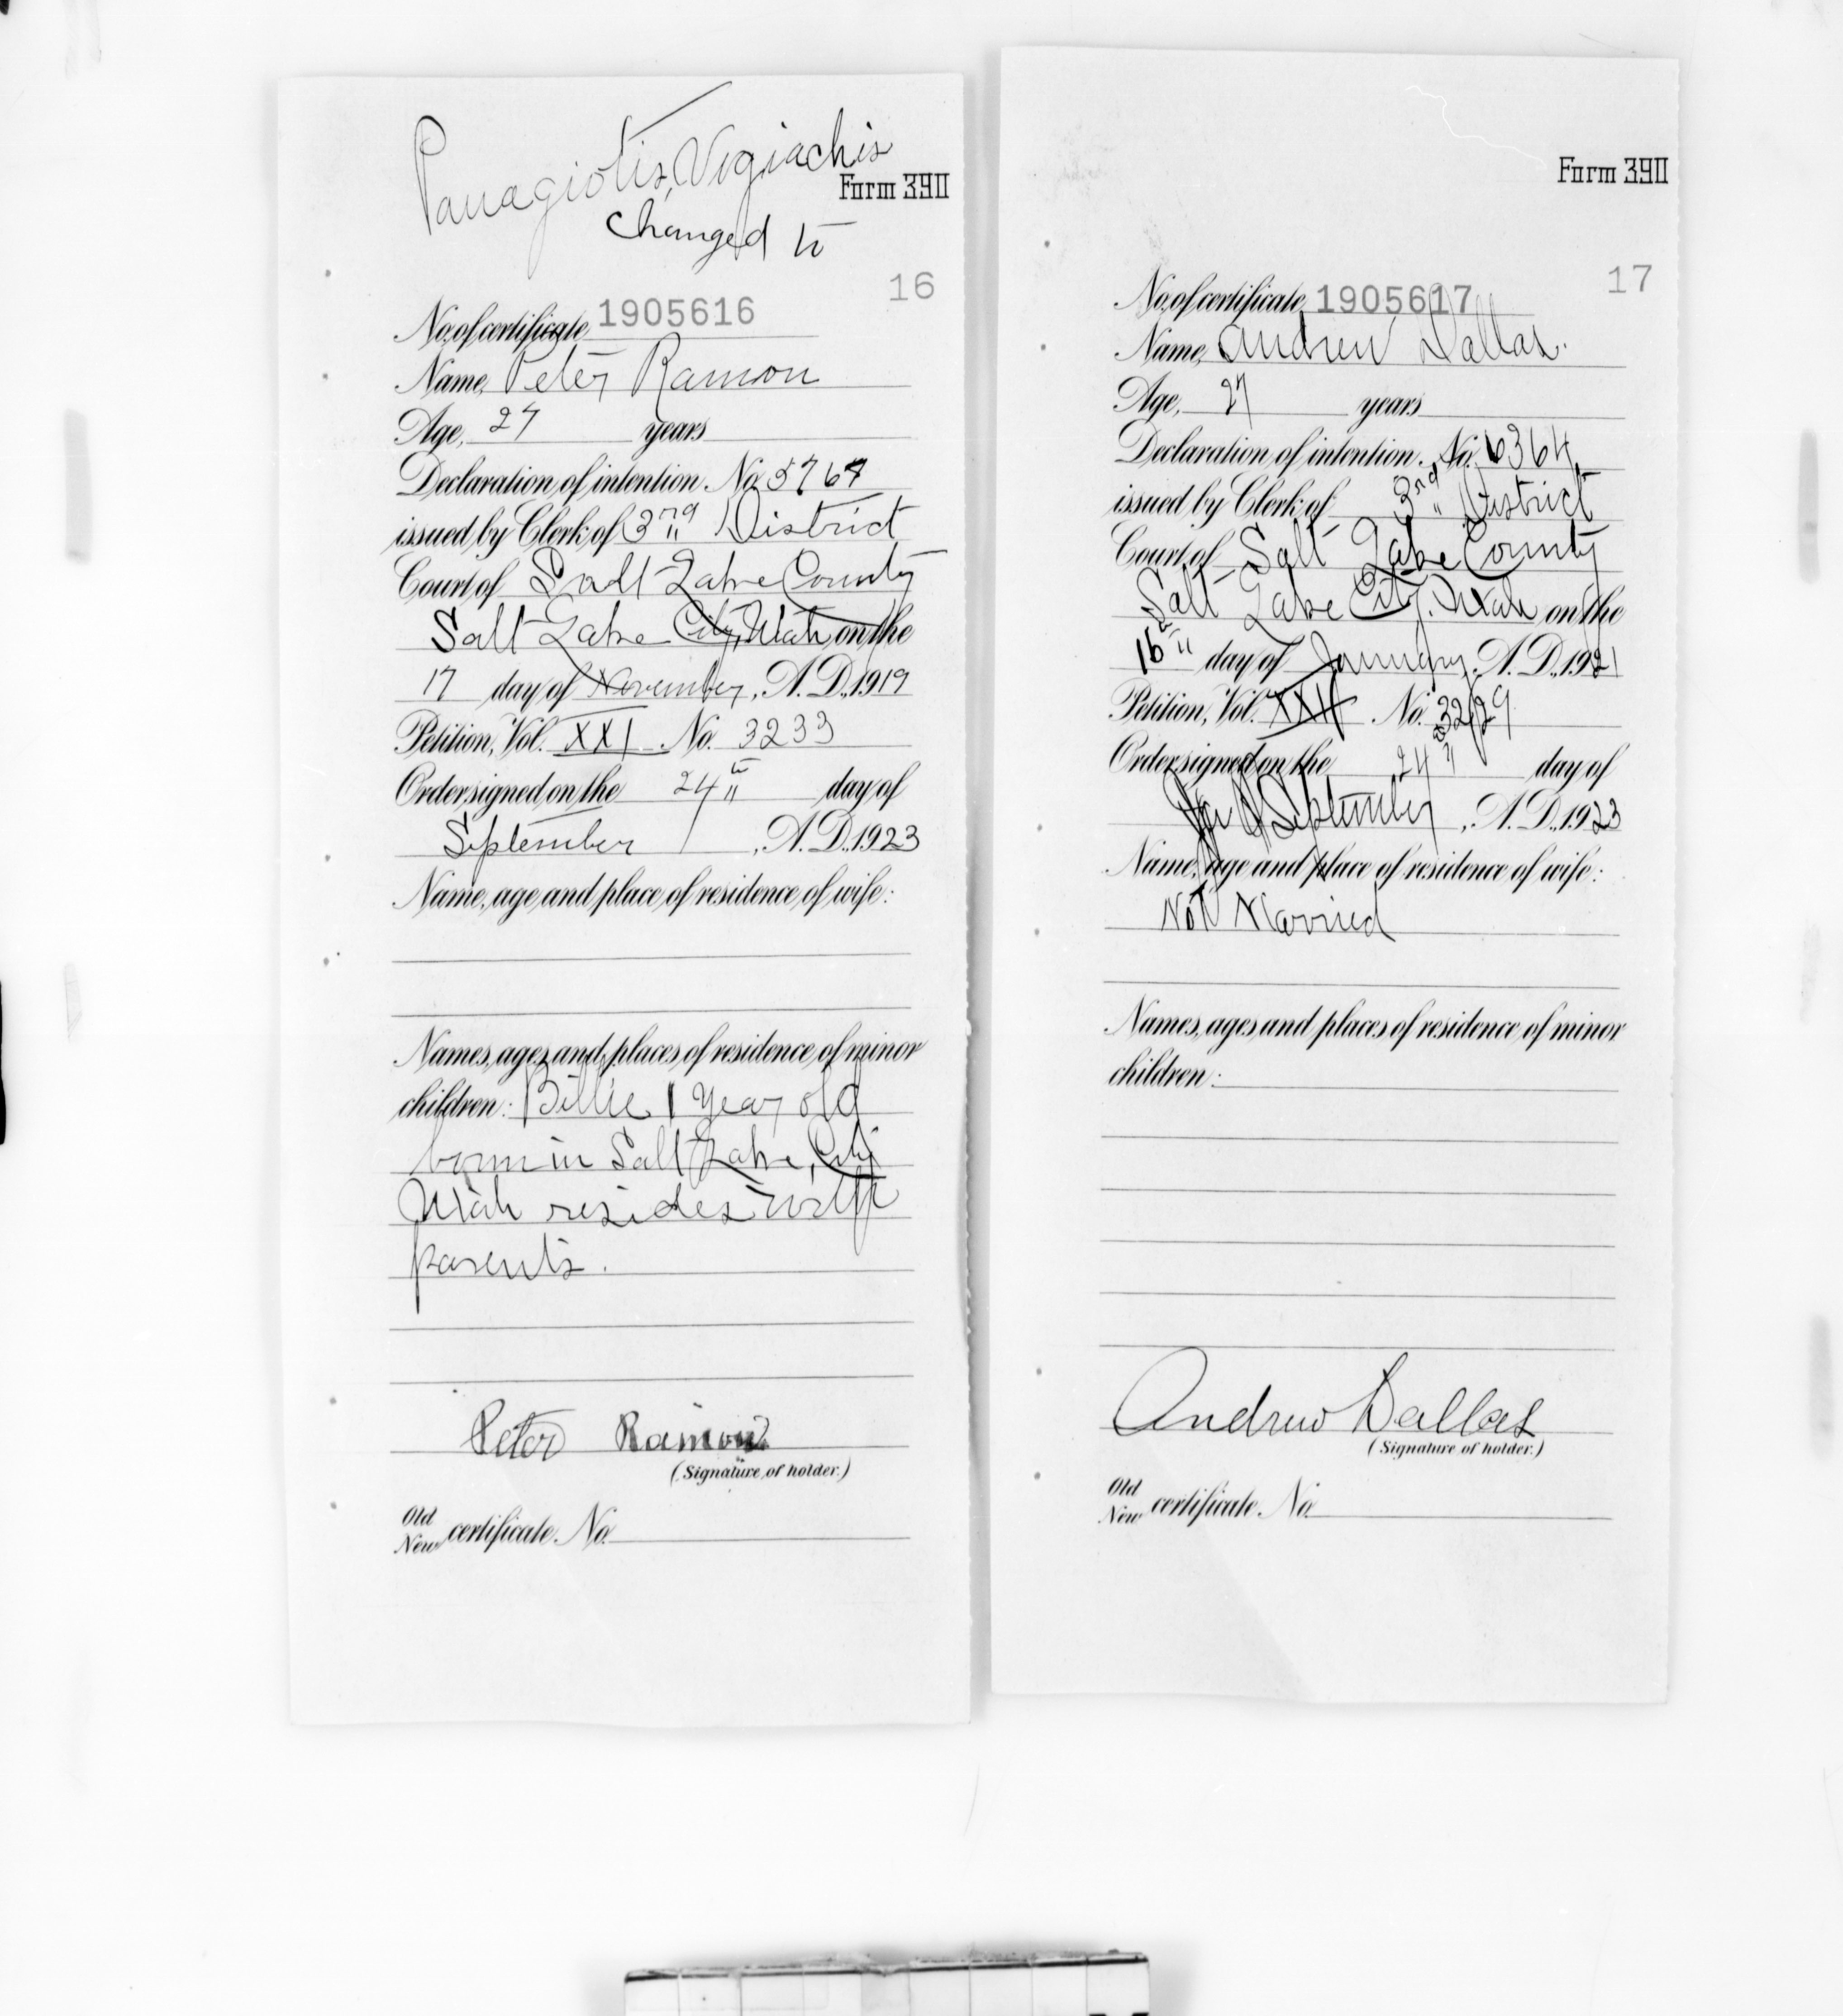 Panagiotis, Vogiachis
Form 390
changed to
16
No. of certificate, 1905616
Name, Peter Ramon
Age, 27 years
Declaration of intention. No. 5767
issued by Clerk of 3rd District
Court of Salt Lake County
Salt Lake City, Utah on the
17 day of November, A. D., 1919
Petition, Vol. XXI No. 3233
Order signed on the 24th day of
September, A. D., 1923
Name, age and place of residence of wife:
Names, ages and places of residence of minor
children: Billie 1 year old
born in Salt Lake, City
Utah resides with
parents.
Peter Ramon
(Signature of holder.)
Old
New certificate. No.
Form 390
17
No. of certificate, 1905617
Name, Andrew Dallas.
Age, 27 years
Declaration of intention. No. 6364
issued by Clerk of 3rd District
Court of Salt Lake County
Salt Lake City, Utah on the
16th day of January, A. D., 1921
Petition, Vol. XXII No.
Order signed on the 24 day of
September, A. D., 1923
Name, age and place of residence of wife:
Not Married
Names, ages and places of residence of minor
children:
Andrew Dallas
(Signature of holder.)
Old
New certificate. No.